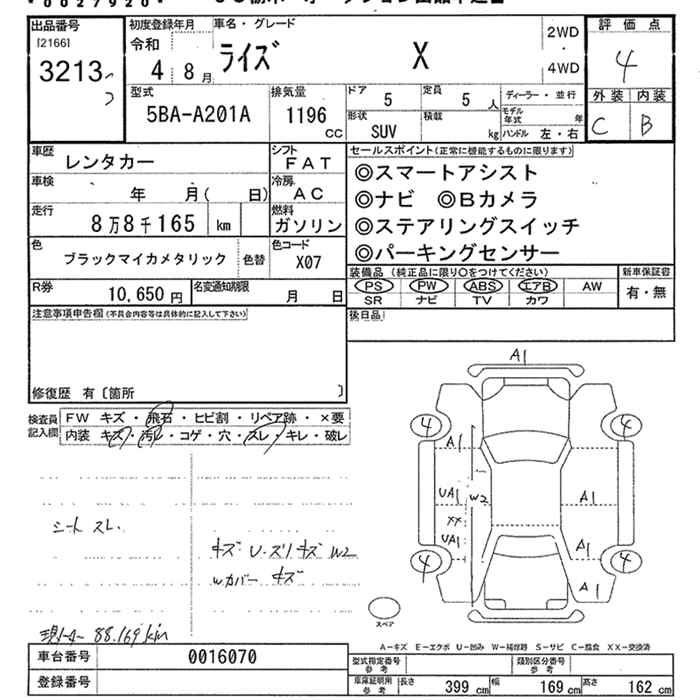 *0027920*
出品番号 初度登録年月 車名・グレード 2WD ・ 4WD 評価点
[2166]
3213 令和 4 8月 ライズ X 4
型式 排気量 ドア 定員 ディーラー・並行 外装 内装
5BA-A201A 1196 CC 5 5人 モデル年式 年 C B
形状 SUV 積載 kg ハンドル 左・右
車歴 レンタカー シフト FAT セールスポイント(正常に機能するものに限ります)
車検 年 月( 日) 冷房 AC ◎スマートアシスト
走行 8万8千165 km 燃料 ガソリン ◎ナビ ◎Bカメラ
◎ステアリングスイッチ
色 ブラックマイカメタリック 色替 色コード X07 ◎パーキングセンサー
装備品(純正品に限り○をつけてください) 新車保証書
R券 10,650円 名変通知期限 月 日 PS PW ABS エアB AW 有・無
SR ナビ TV カワ
注意事項申告欄(不具合内容等は具体的に記入して下さい) 後日品
修復歴 有〔箇所 〕
検査員記入欄 FW キズ・飛石・ヒビ割・リペア跡・×要
内装 キズ・汚レ・コゲ・穴・スレ・キレ・破レ
A1
4 4
A1
UA1 W2 A1
XX
UA1 A1
4 4
A1
スペア
シート スレ.
キズ U.ズリキズ W2
Wカバー キズ
現メーター 88.169km
A-キズ E-エクボ U-凹み W-補修跡 S-サビ C-腐食 XX-交換済
車台番号 0016070 型式指定番号 参考 類別区分番号 参考
登録番号 車庫証明用 参考 長さ 399cm 幅 169cm 高さ 162cm